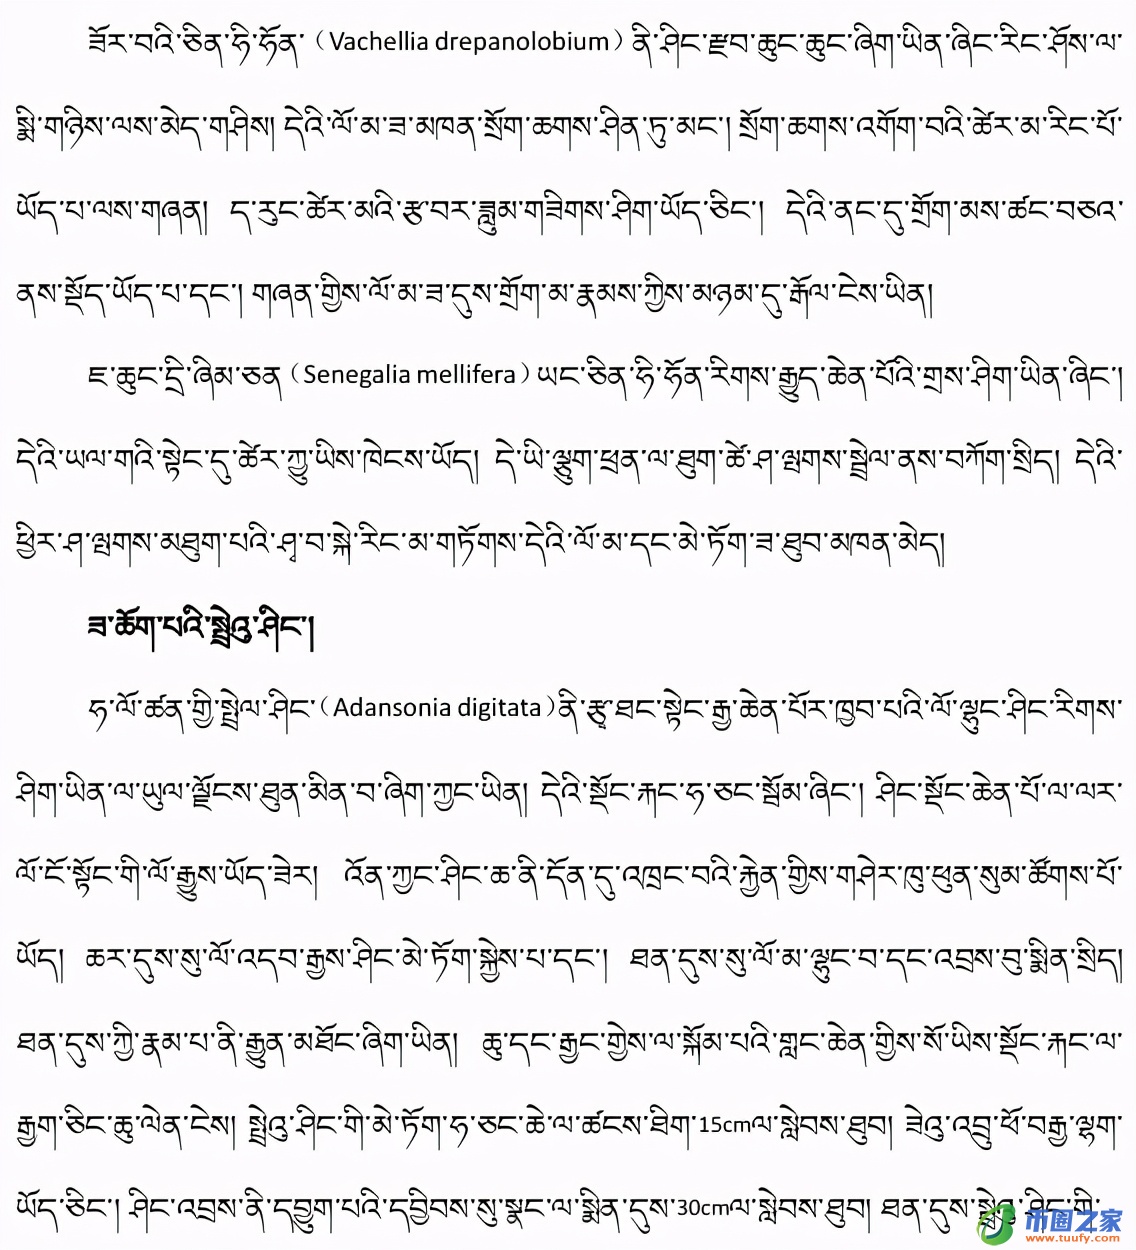 ཟོར་བའི་ཅིན་ཧི་ཧོན་（Vachellia drepanolobium）ནི་ཤིང་རྫབ་ཆུང་ཆུང་ཞིག་ཡིན་ཞིང་རིང་ཤོས་ལ་
སྨི་གཉིས་ལས་མེད་གཤིས། དེའི་ལོ་མ་ཟ་མཁན་སྲོག་ཆགས་ཤིན་ཏུ་མང་། སྲོག་ཆགས་འགོག་བའི་ཚེར་མ་རིང་པོ་
ཡོད་པ་ལས་གཞན། ད་རུང་ཚེར་མའི་རྩ་བར་ཟླུམ་གཟིགས་ཤིག་ཡོད་ཅིང་། དེའི་ནང་དུ་གྲོག་མས་ཚང་བཅའ་
ནས་སྡོད་ཡོད་པ་དང་། གཞན་གྱིས་ལོ་མ་ཟ་དུས་གྲོག་མ་རྣམས་ཀྱིས་མཉམ་དུ་རྒོལ་ངེས་ཡིན།
ཇ་ཆུང་དྲི་ཞིམ་ཅན（Senegalia mellifera）ཡང་ཅིན་ཧི་ཧོན་རིགས་རྒྱུད་ཆེན་པོའི་གྲས་ཤིག་ཡིན་ཞིང་།
དེའི་ཡལ་གའི་སྟེང་དུ་ཚེར་ཀྱུ་ཡིས་ཁེངས་ཡོད། དེ་ཡི་ལྕུག་ཕྲན་ལ་ཐུག་ཚེ་ཤ་ལྤགས་སྦྲེལ་ནས་བཀོག་སྲིད། དེའི་
ཕྱིར་ཤ་ལྤགས་མཐུག་པའི་ཤྭ་བ་སྐེ་རིང་མ་གཏོགས་དེའི་ལོ་མ་དང་མེ་ཏོག་ཟ་ཐུབ་མཁན་མེད།
ཟ་ཆོག་པའི་སྤྲེའུ་ཤིང་།
ཧ་ལོ་ཚན་གྱི་སྤྲེལ་ཤིང་（Adansonia digitata）ནི་རྩྭ་ཐང་སྟེང་རྒྱ་ཆེན་པོར་ཁྱབ་པའི་ལོ་ལྷུང་ཤིང་རིགས་
ཤིག་ཡིན་ལ་ཡུལ་ལྗོངས་ཐུན་མིན་བ་ཞིག་ཀྱང་ཡིན། དེའི་སྡོང་རྐང་ཧ་ཅང་སྦོམ་ཞིང་། ཤིང་སྡོང་ཆེན་པོ་ལ་ལར་
ལོ་ངོ་སྟོང་གི་ལོ་རྒྱུས་ཡོད་ཟེར། འོན་ཀྱང་ཤིང་ཆ་ནི་དོན་དུ་འཁྲང་བའི་རྐྱེན་གྱིས་གཤེར་ཁུ་ཕུན་སུམ་ཚོགས་པོ་
ཡོད། ཆར་དུས་སུ་ལོ་འདབ་རྒྱས་ཤིང་མེ་ཏོག་སྐྱེས་པ་དང་། ཐན་དུས་སུ་ལོ་མ་ལྷུང་བ་དང་འབྲས་བུ་སྨིན་སྲིད།
ཐན་དུས་ཀྱི་རྣམ་པ་ནི་རྒྱུན་མཐོང་ཞིག་ཡིན། ཆུ་དང་རྒྱང་གྱེས་ལ་སྐོམ་པའི་གླང་ཆེན་གྱིས་སོ་ཡིས་སྡོང་རྐང་ལ་
རྒྱག་ཅིང་ཆུ་ལེན་ངེས། སྤྲེའུ་ཤིང་གི་མེ་ཏོག་ཧ་ཅང་ཆེ་ལ་ཚངས་ཐིག་15cmལ་སླེབས་ཐུབ། ཟེའུ་འབྲུ་ཕོ་བརྒྱ་ལྷག་
ཡོད་ཅིང་། ཤིང་འབྲས་ནི་དབྱུག་པའི་དབྱིབས་སུ་སྣང་ལ་སྨིན་དུས་30cmལ་སླེབས་ཐུབ། ཐན་དུས་སྤྲེའུ་ཤིང་གི་
币圈之家
www.tuufy.com